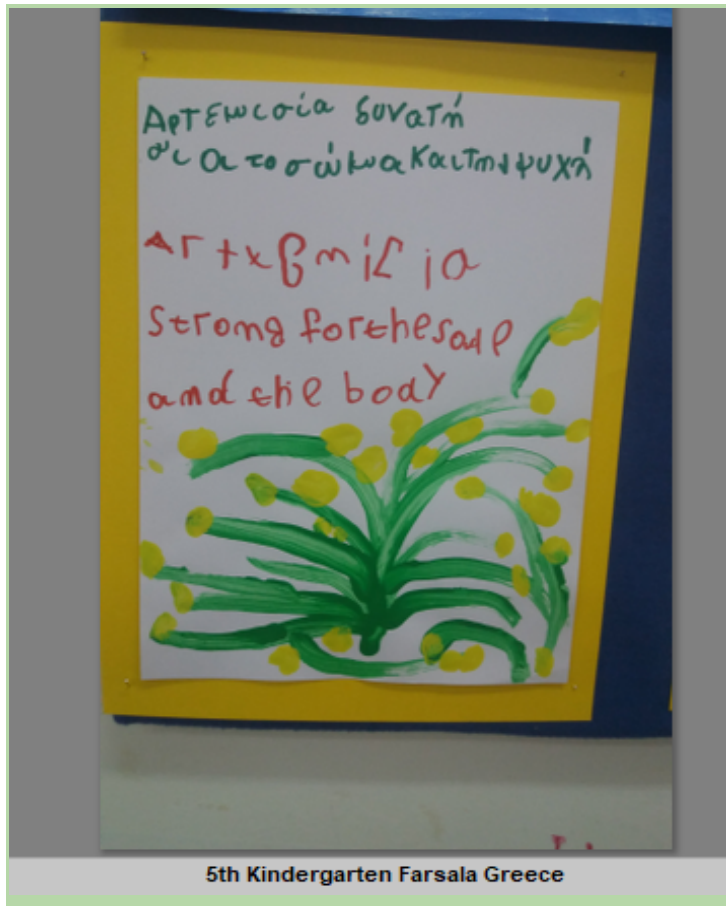 Αρτεμισία δυνατή
για το σώμα και την ψυχή
strong for the soul
and the body
5th Kindergarten Farsala Greece